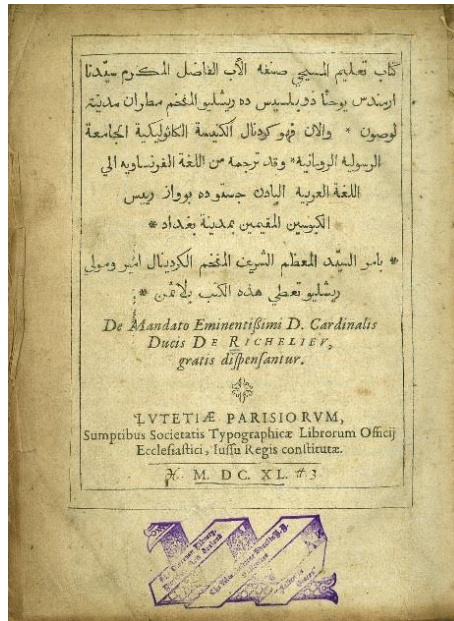 كتاب تعليم المسيحي صنفه الأب الفاضل المكرم سيّدنا
ارمندس يوحنّا دوبلسيس ده ريشليو المفخم مطران مدينة
لوصون * والان فهو كردنال الكنيسة الكاثوليكية الجامعة
الرسولية الرومانية * وقد ترجمه من اللغة الفرنساويه الي
اللغة العربية البادري جستو ده بوواز رييس
الكبوسين المقيمين بمدينة بغداد *
* بامر السيّد المعظم الشريف المفخم الكردينال امير ومولي
ريشليو تعطي هذه الكتب بلا ثمن *
De Mandato Eminentißimi D. Cardinalis
Ducis DE RICHELIEV,
gratis dispensantur.
LVTETIÆ PARISIORVM,
Sumptibus Societatis Typographicæ Librorum Officij
Ecclesiastici, Iussu Regis constitutæ.
M. DC. XL.